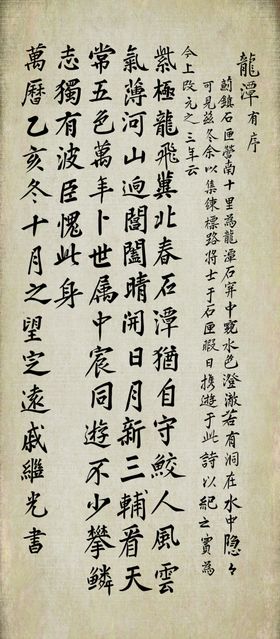 龍潭 有序
薊鎮石匣營南十里為龍潭石穽中窺水色澄澈若有洞在水中隱々
可見茲冬余以集鍊標路將士于石匣暇日携遊于此詩以紀之實為
今上改元之三年云
紫極龍飛冀北春石潭猶自守鮫人風雲
氣薄河山迥閶闔晴開日月新三輔看天
常五色萬年卜世属中宸同遊不少攀鱗
志獨有波臣愧此身
萬曆乙亥冬十月之望定遠戚繼光書